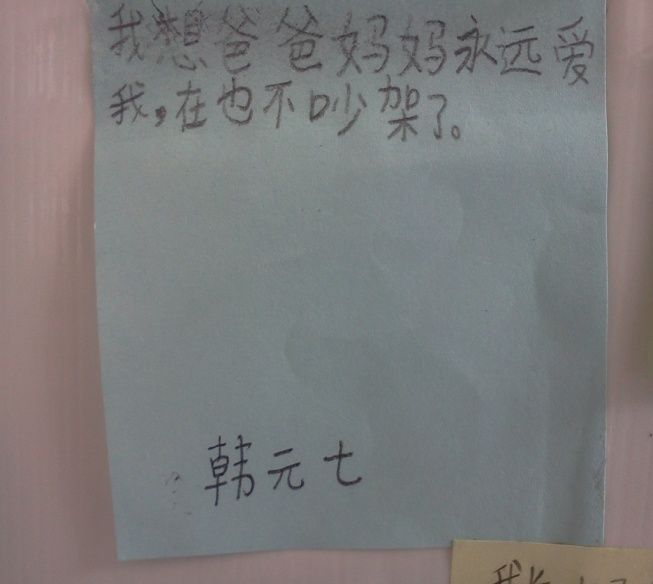 我想爸爸妈妈永远爱
我,在也不吵架了。
韩元七
我